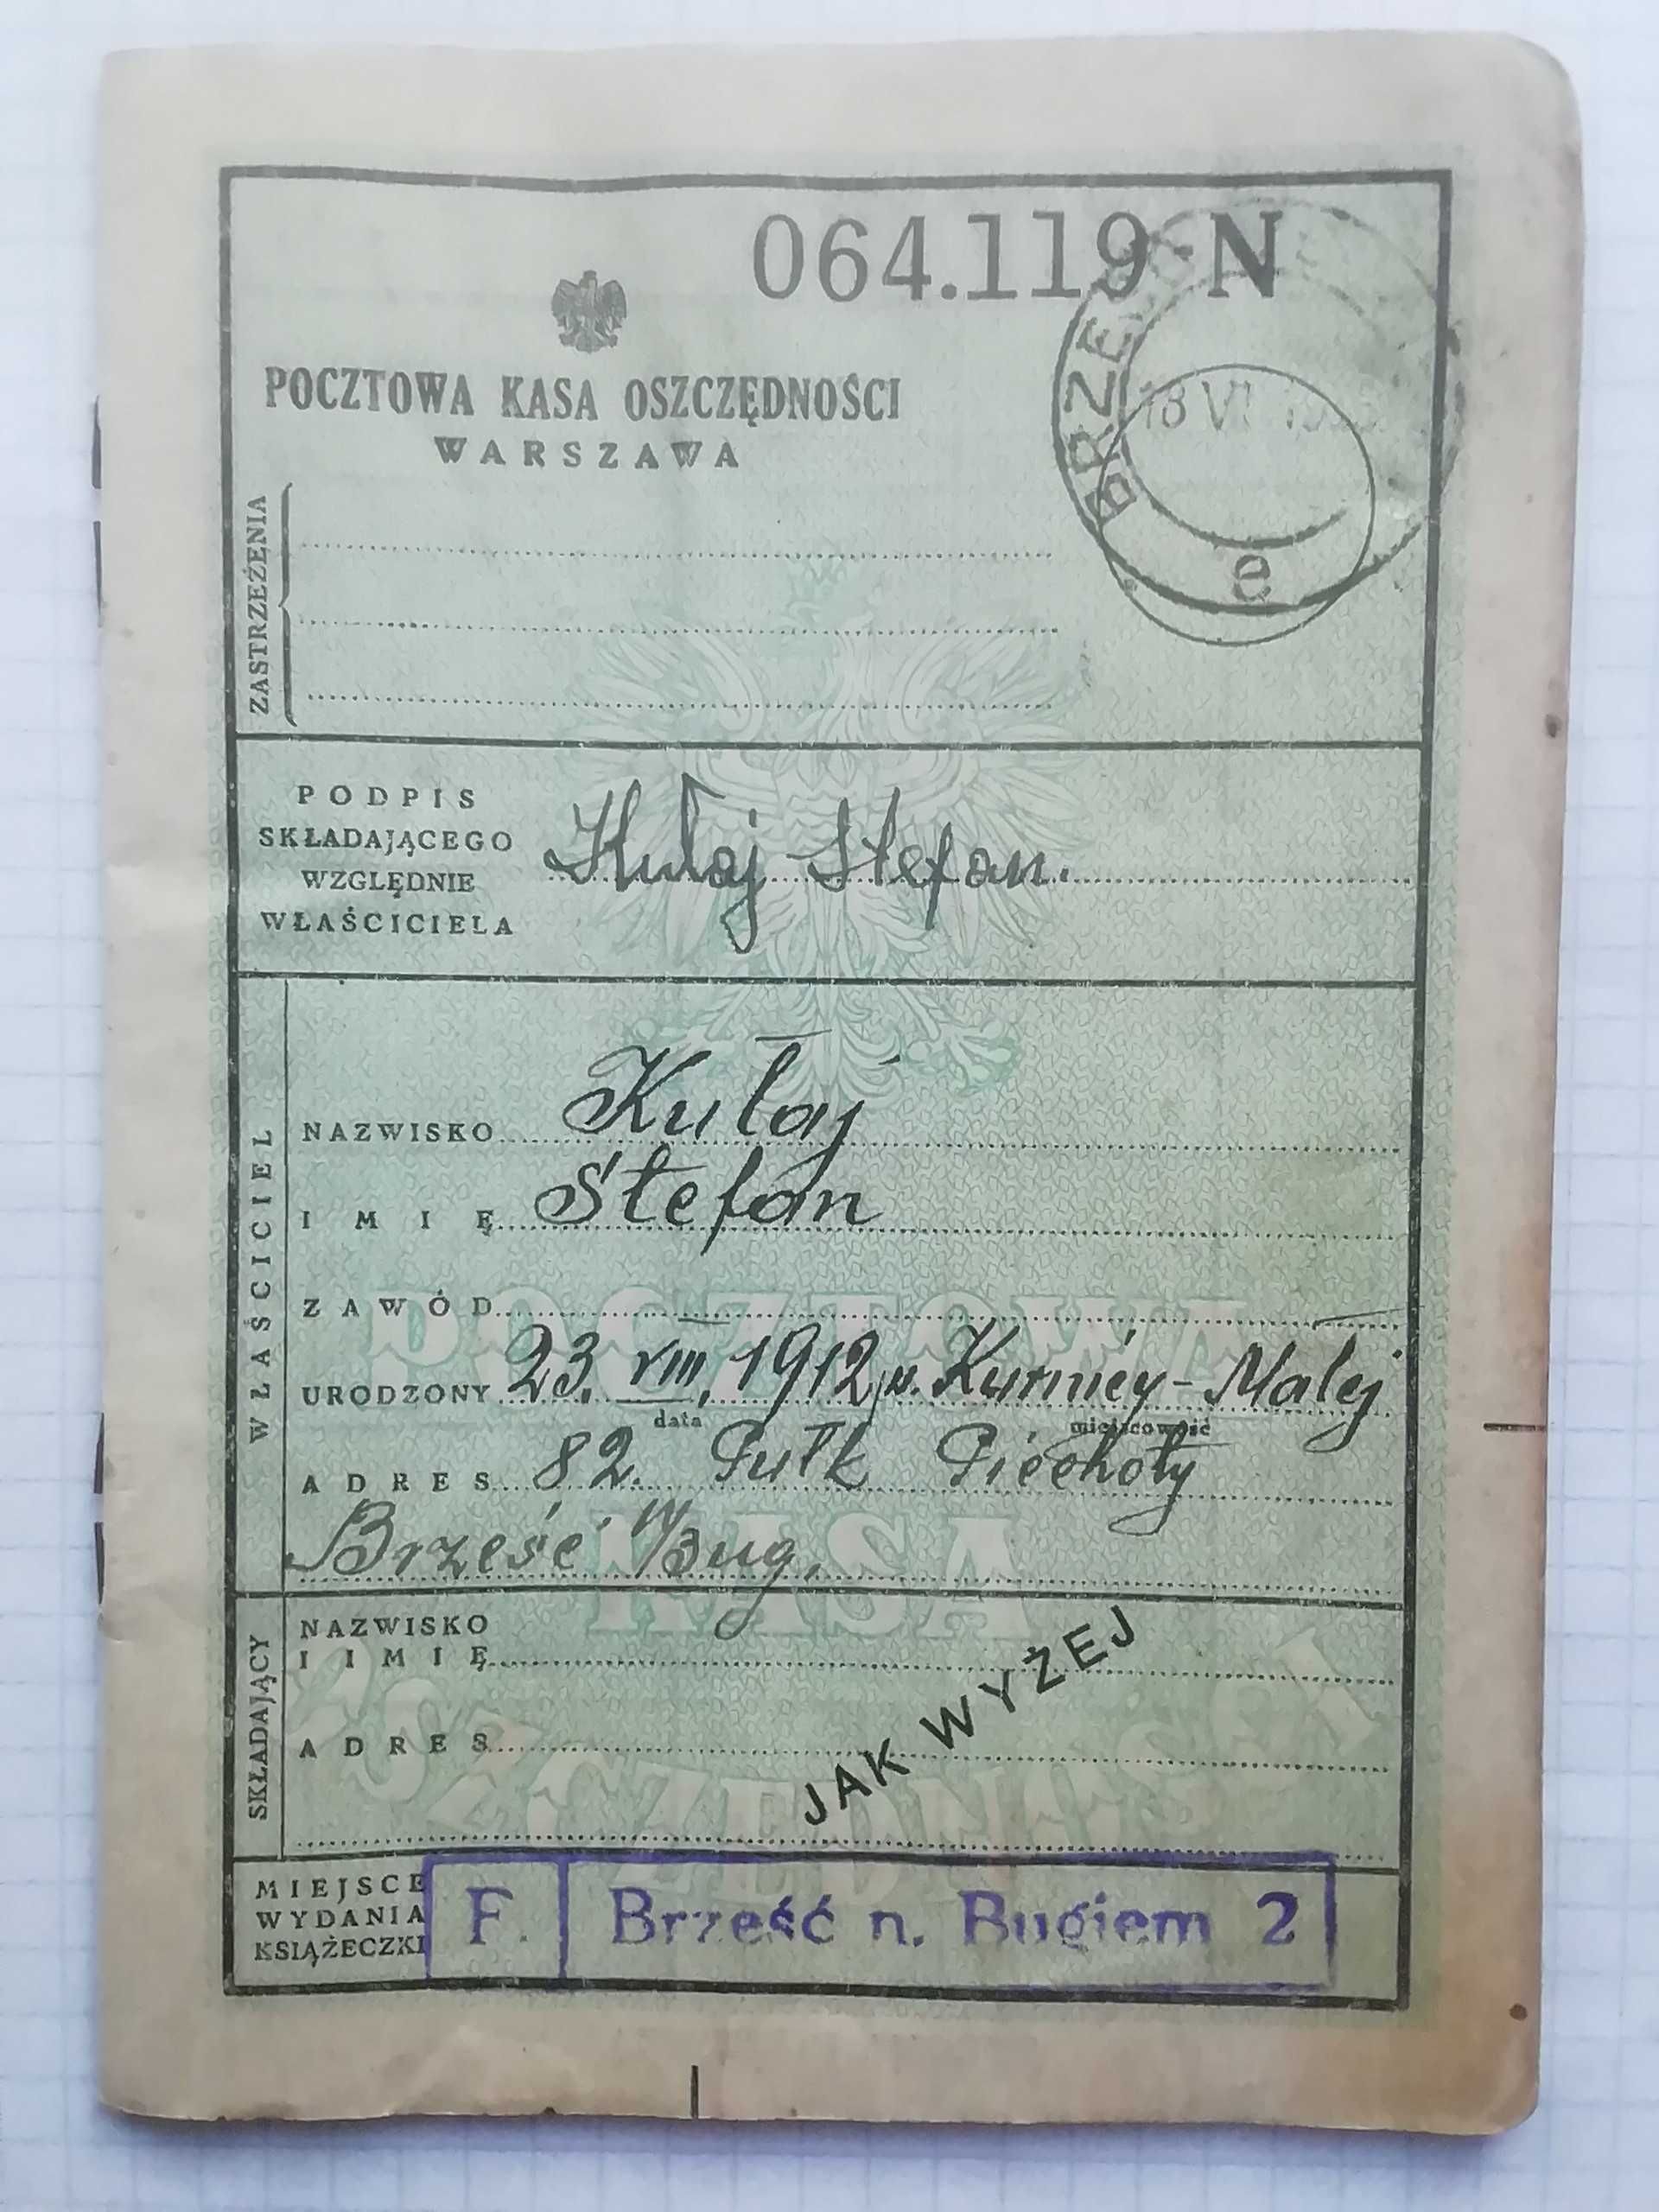 064.119 N
BRZEŚĆ
18 VI
e
POCZTOWA KASA OSZCZĘDNOŚCI
WARSZAWA
ZASTRZEŻENIA
PODPIS
SKŁADAJĄCEGO
WZGLĘDNIE
WŁAŚCICIELA
Kułaj Stefan.
WŁAŚCICIEL
NAZWISKO Kułaj
IMIĘ Stefan
ZAWÓD
URODZONY 23. VIII. 1912 Małej
data miejscowość
ADRES 82. Pułk Piechoty
Brześć n/Bug.
SKŁADAJĄCY
NAZWISKO
I IMIĘ
ADRES
JAK WYŻEJ
MIEJSCE
WYDANIA
KSIĄŻECZKI
F. Brześć n. Bugiem 2
POCZTOWA
KASA
OSZCZĘDNOŚCI